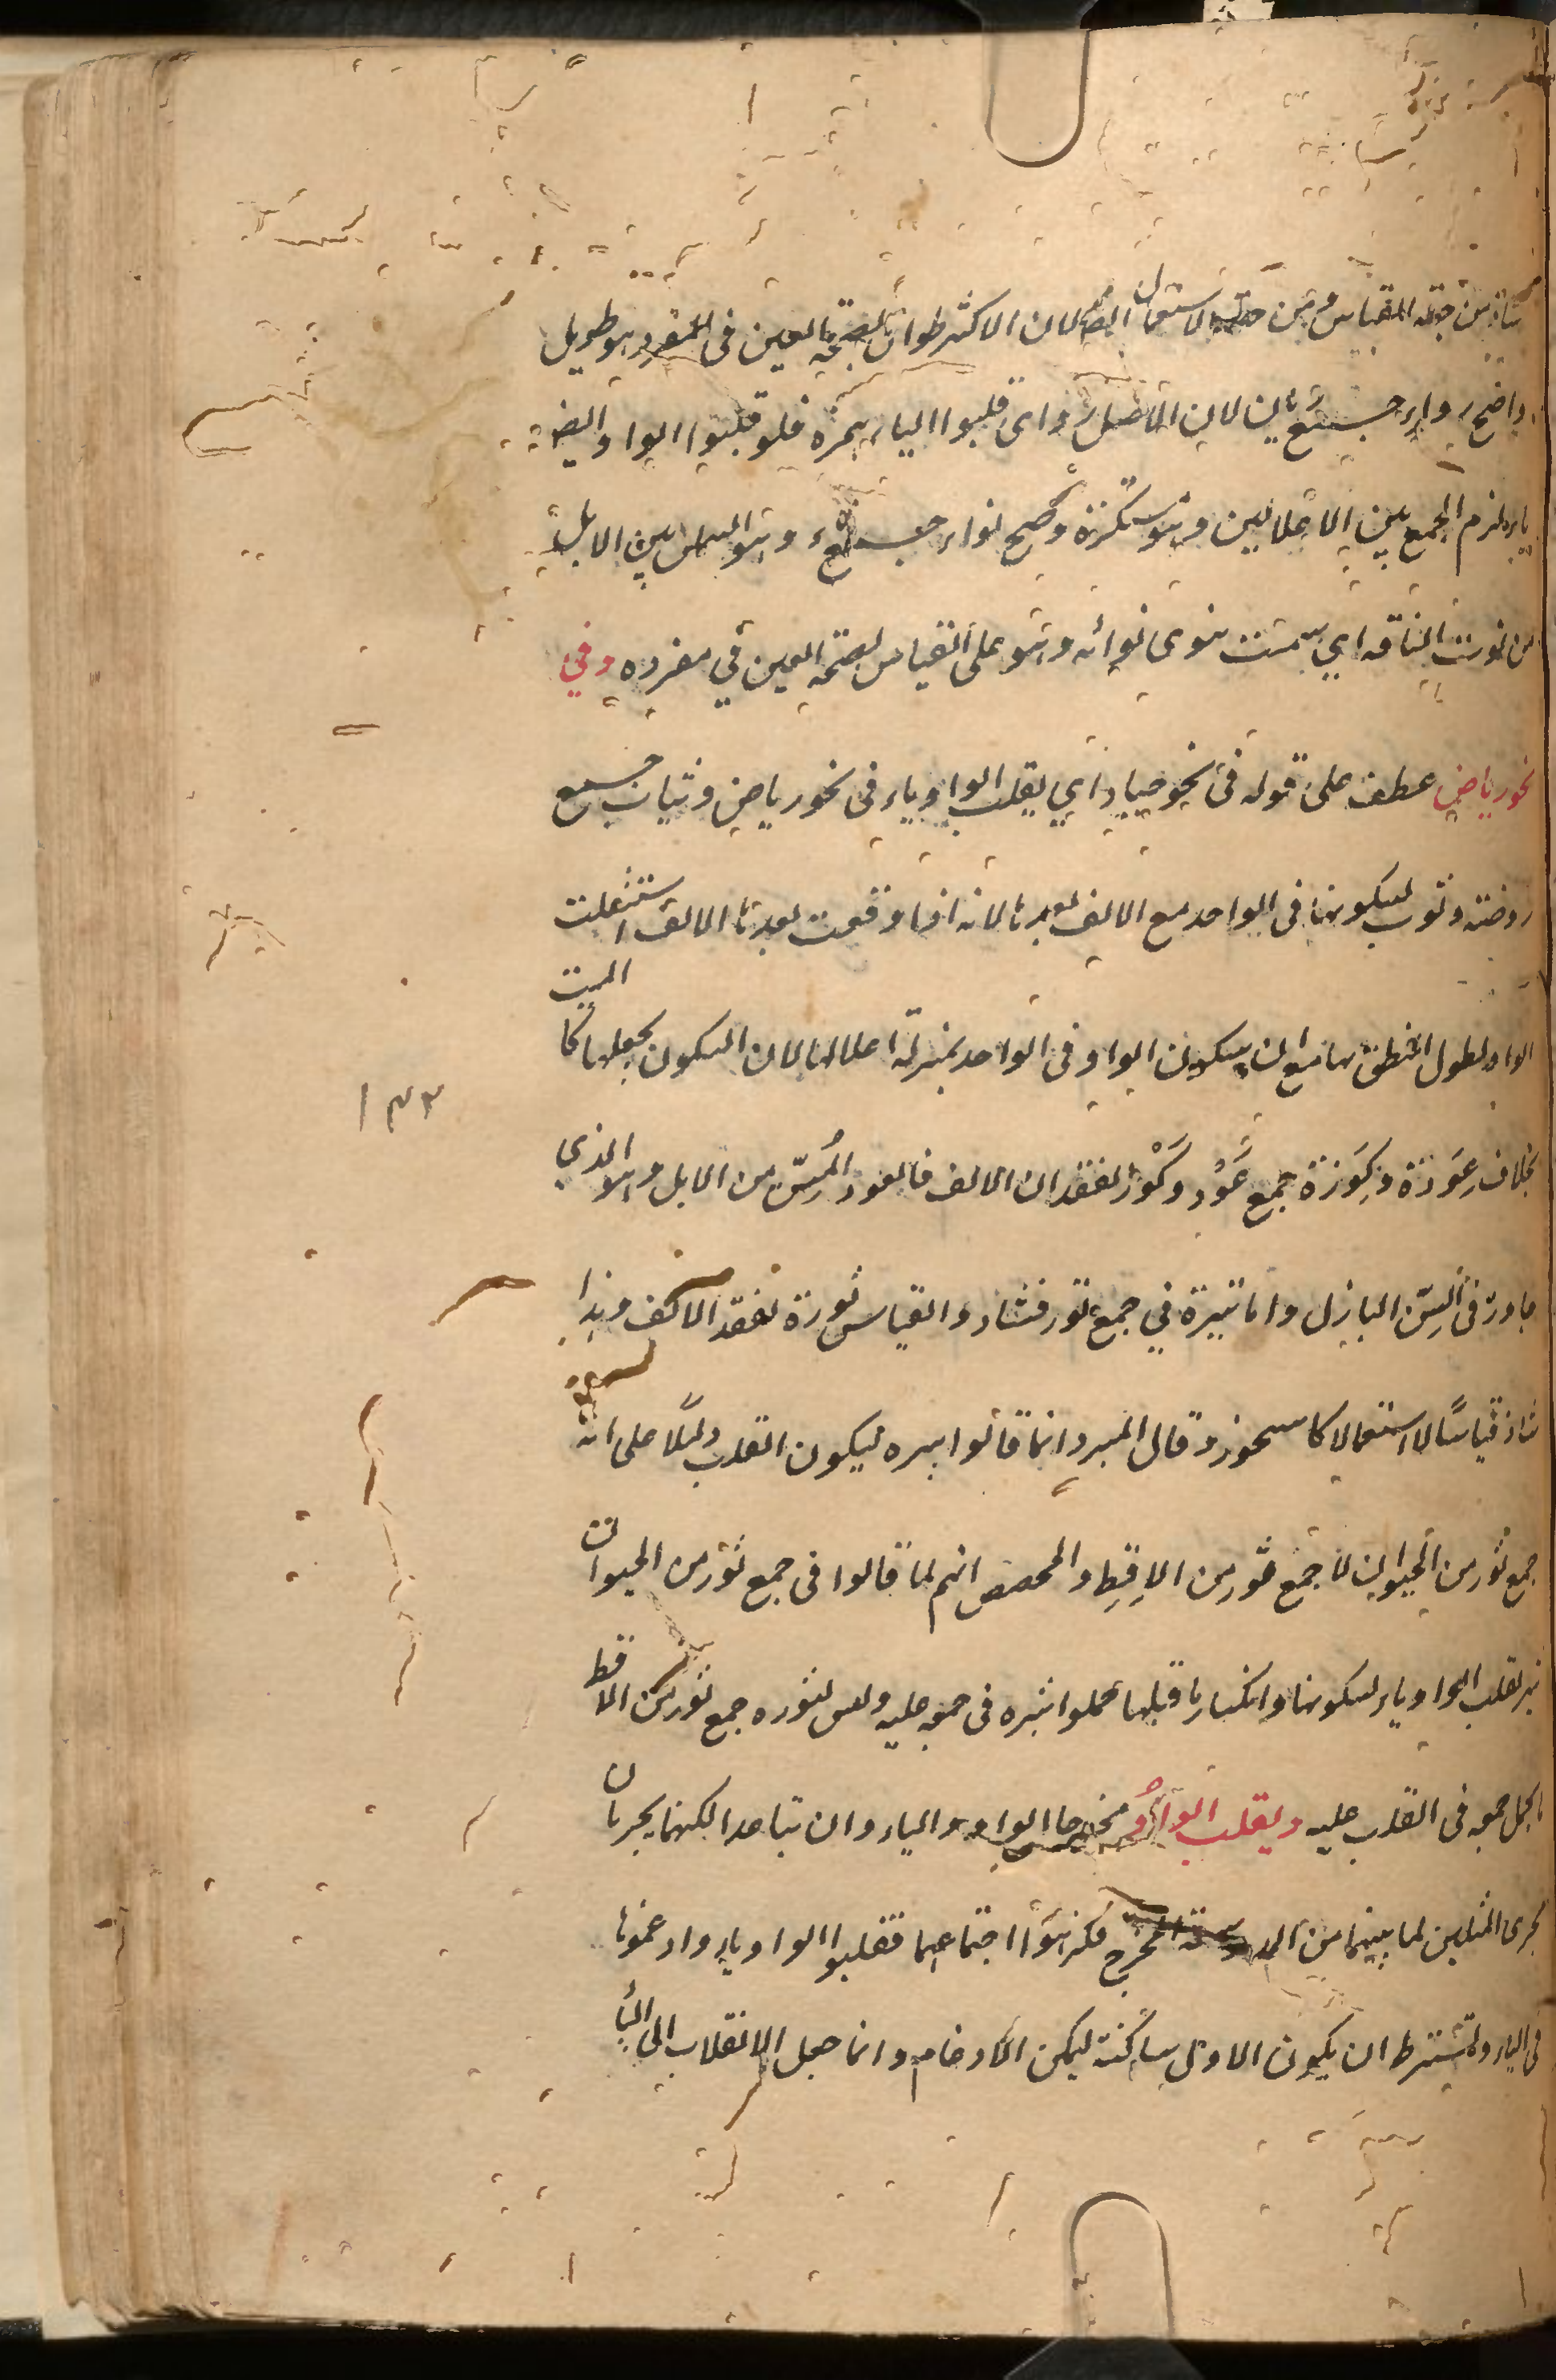 شاذ من جهة القياس ومن جهة الاستعمال ايضا لان الاكثر طوال لصحة العين في المفرد وهو طويل
واضح رواء جمع ريان لان الاصل رواى قلبوا الياء همزة فلو قلبوا الواو ايضا
ياء لزم الجمع بين الاعلالين وهو مستكره وصح نواء جمع ناو وهو السمين الابل
من نوت الناقة اي سمنت تنوى نواية وهو على القياس لصحة العين في مفرده وفي
نحو رياض عطف على قوله في نحو جياد اي يقلب الواو ياء في نحو رياض وثياب جمع
روضة وثوب لسكونها في الواحد مع الالف بعدها لانه اذا وقعت بعدها الالف استثقلت
الواو لطول النطق بها مع ان سكون الواو في الواحد بمنزلة اعلالها لان السكون يجعلها كالميت
بخلاف عِوَدَة وكِوَزَة جمع عَوْد وكَوْز لفقدان الالف فالعود المُسِنّ من الابل وهو الذي
جاوز في السِنّ البازل واما ثيرة في جمع ثور فشاذ والقياس ثورة لفقد الالف وهذا
شاذ قياسًا لا استعمالا كاستحوذ وقال المبرد انما قالوا ثيره ليكون القلب دليلًا على انه
جمع ثور من الحيوان لا جمع ثور من الاقِطِ والمحصص انهم لما قالوا في جمع ثور من الحيوان
ثير بقلب الواو ياء لسكونها وانكسار ما قبلها حملوا ثيره في جمعه عليه وليس لثوره جمع ثور من الاقط
ما يحمل جمعه في القلب عليه ويقلب الواوُ مخرجا الواو والياء وان تباعدا لكنهما يجريان
مجرى المثلين لما بينهما من المد وسعة المخرج فكرهوا اجتماعهما فقلبوا الواو ياء وادغموها
في الياء ويشترط ان يكون الاولى ساكنة ليمكن الادغام وانما جعل الانقلاب الى اليا
١٣٢